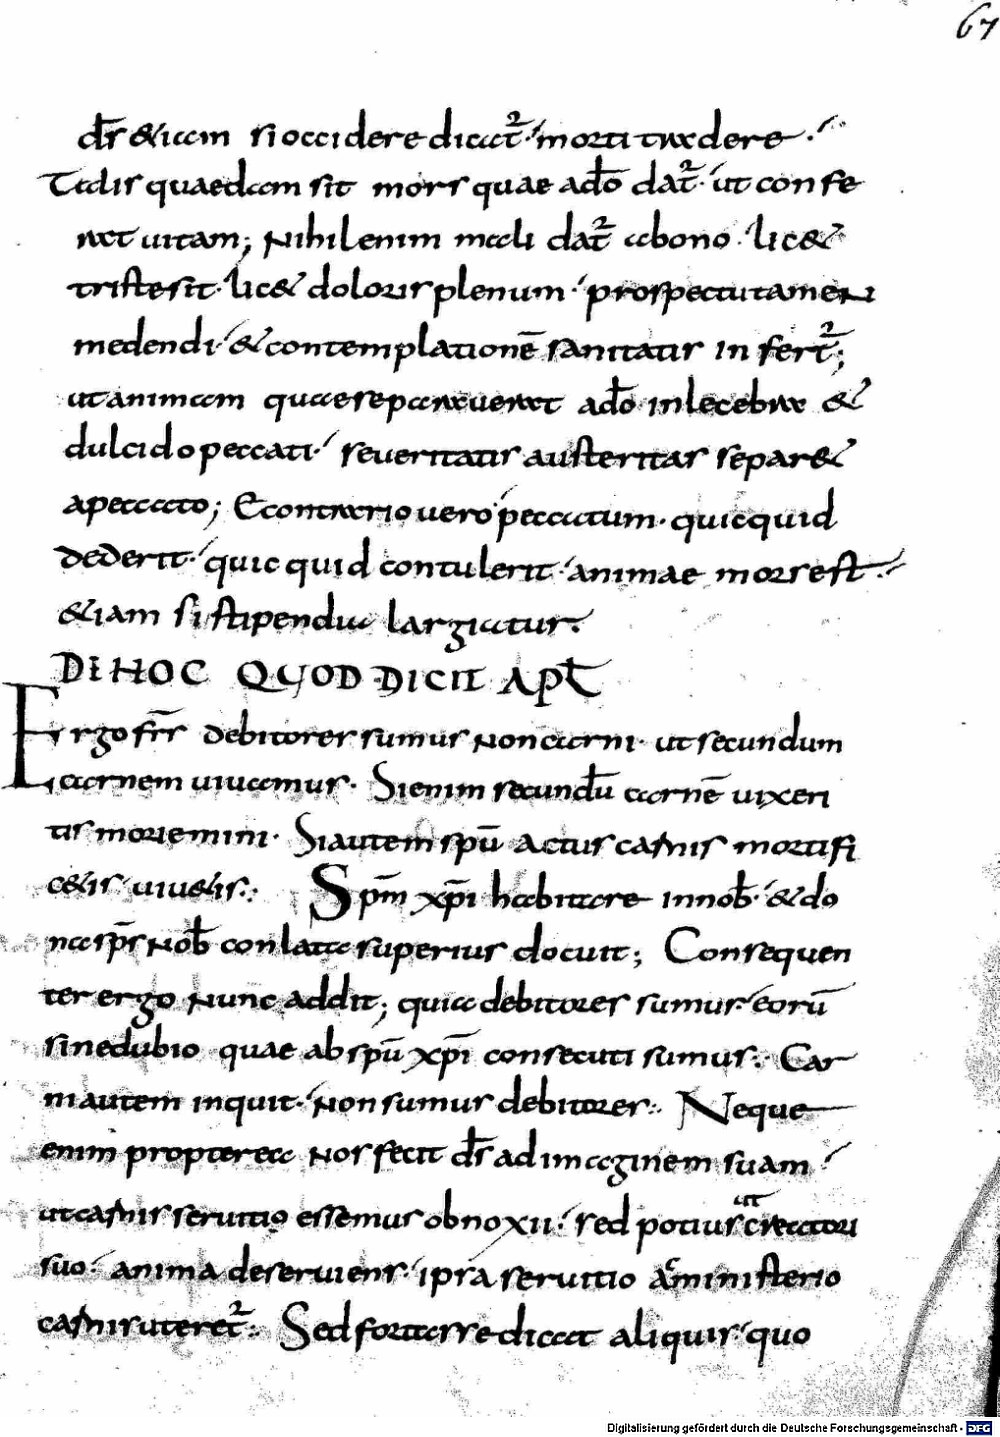 67
d̄s &iam si occidere dicat᷑ morti tradere.
Talis quaedam sit mors quae ad̄o dat᷑. ut confe
rat uitam; Nihil enim mali dat᷑ abono. lic&
triste sit. lic& doloris plenum. prospectu tamen
medendi. & contemplationē sanitatis infert᷑;
ut animam quae separauerat ad̄o inlecebra &
dulcido peccati. seueritatis austeritas separ&
apeccato; Econtrario uero peccatum. quicquid
dederit. quicquid contulerit. animae mors est.
&iam si stipendia largiatur.
DE HOC QUOD DICIT APŁ
Ergo fr̄s debitores sumus non carni. ut secundum
carnem uiuamus. Si enim secundū carnē uixeri
tis moriemini. Si autem spū actus carnis mortifi
c&is uiu&is. Spm̄ xp̄i habitare in nob̄. & do
na sp̄s nob̄ conlata superius docuit; Consequen
ter ergo nunc addit; quia debitores sumus eorū
sine dubio quae ab spū xp̄i consecuti sumus. Car
ni autem inquit. non sumus debitores. Neque
enim propterea nos fecit d̄s ad imaginem suam
ut carnis seruitio essemus obnoxii. sed potius ut creatori
suo. anima deseruiens. ipsa seruitio ac ministerio
carnis uteret᷑. Sed fortasse dicat aliquis. quo
Digitalisierung gefördert durch die Deutsche Forschungsgemeinschaft - DFG